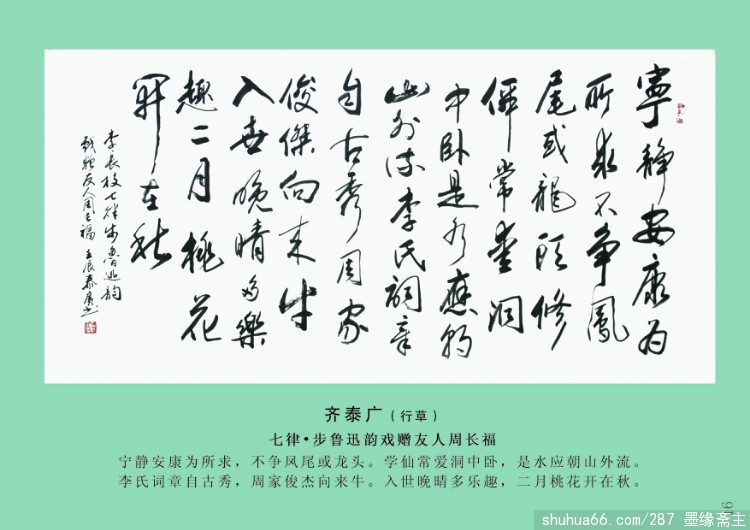 寧静安康为
所求不争鳳
尾或龍頭修
僊常爱洞
中卧是水應朝
山外流李氏詞章
自古秀周家
俊傑向来牛
入世晚晴多樂
趣二月桃花
開在秋
李长枝七律步鲁迅韵
戏赠友人周长福 壬辰泰广书
齐泰广（行草）
七律•步鲁迅韵戏赠友人周长福
宁静安康为所求，不争凤尾或龙头。学仙常爱洞中卧，是水应朝山外流。
李氏词章自古秀，周家俊杰向来牛。入世晚晴多乐趣，二月桃花开在秋。
16
shuhua66.com/287 墨缘斋主